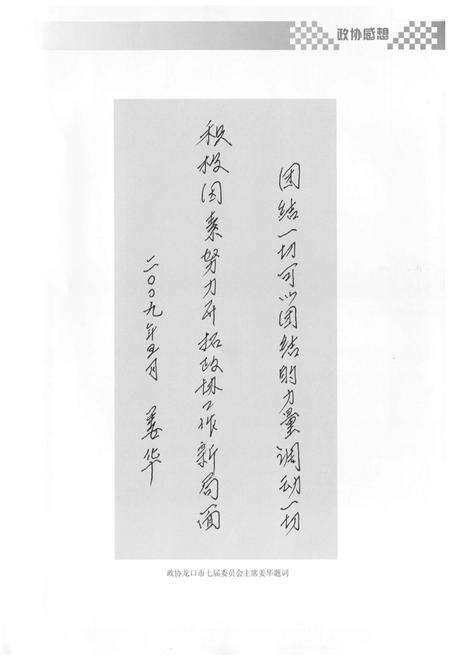 政协感想
团结一切可以团结的力量调动一切
积极因素努力开拓政协工作新局面
二〇〇九年五月 姜华
政协龙口市七届委员会主席姜华题词